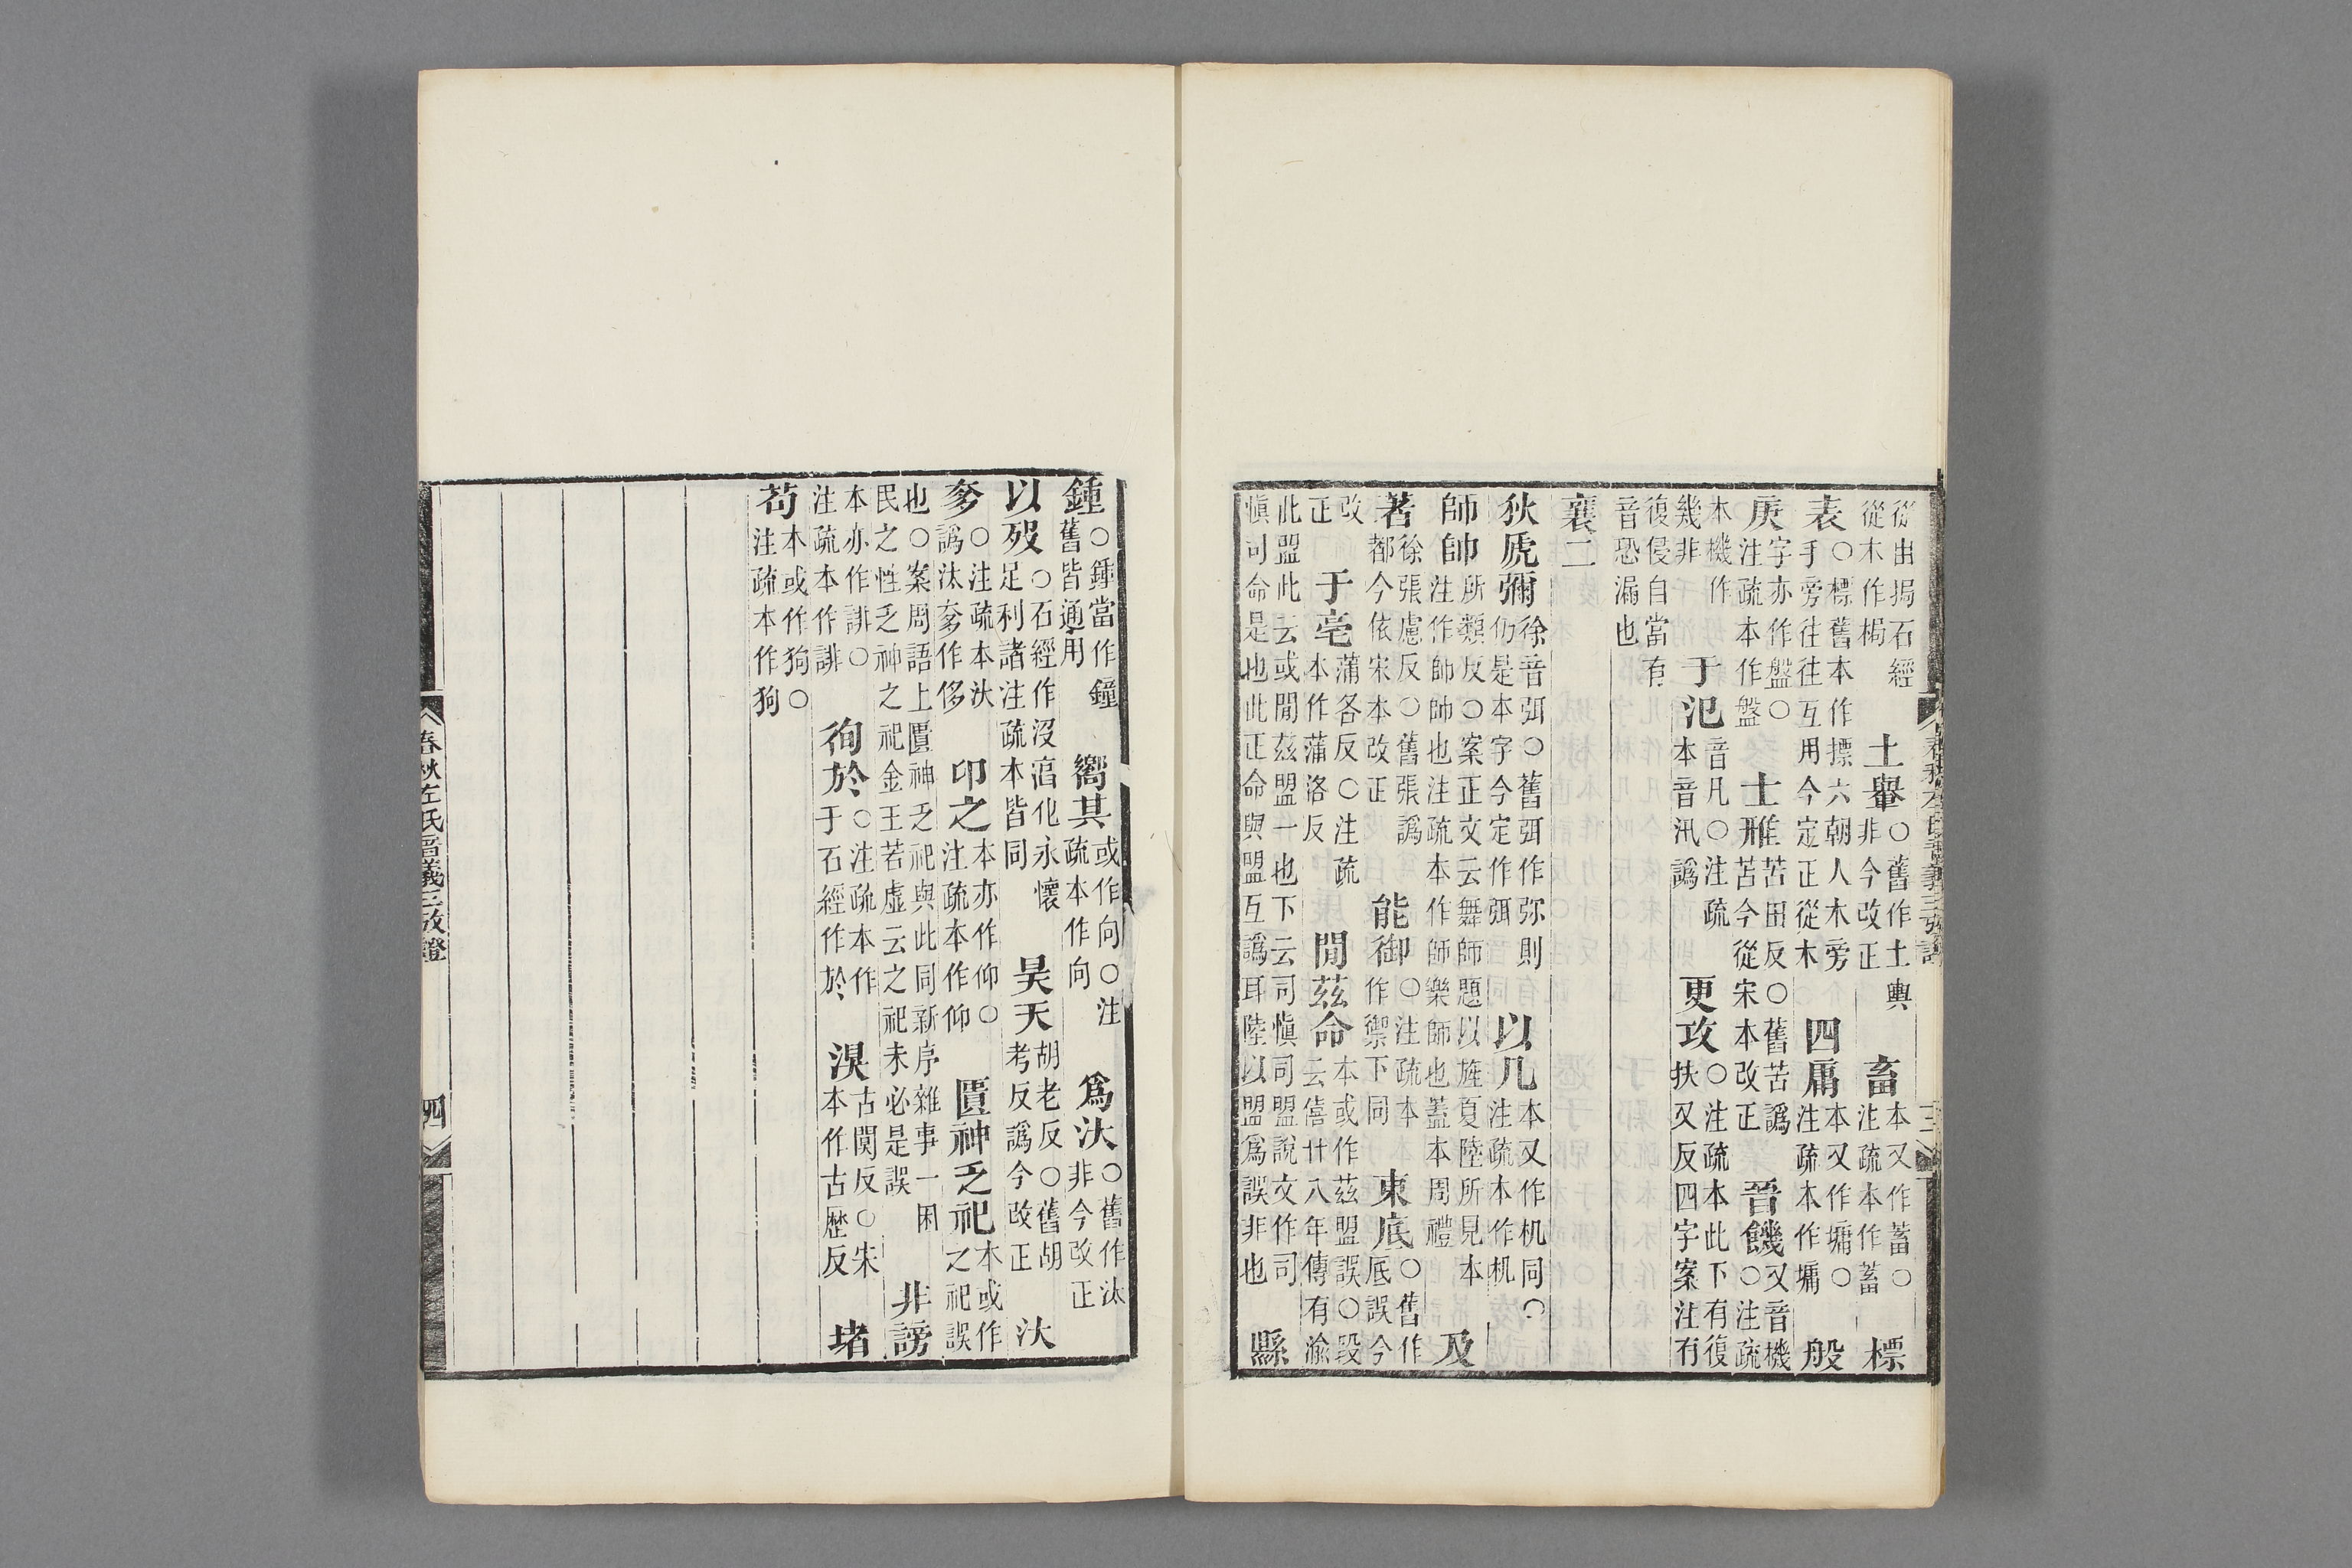 春秋左氏音義三攷證 三
從出揭石經從木作楬 土轝○舊作土輿非今改正 畜本又作蓄○注疏本作蓄 標
表○標舊本作摽六朝人木旁手旁往往互用今定正從木 四庸本又作墉○注疏本作墉 般
庚字亦作盤○注疏本作盤 士雃苦田反○舊苦譌苦今從宋本改正 晉饑又音機○注疏
本機作幾非 于氾音凡○注疏本音汎譌 更攻○注疏本此下有復扶又反四字案注有
復侵自當有音恐漏也
襄二
狄虎彌徐音弭○舊弭作弥則仍是本字今定作弭 以几本又作机同○注疏本作机
師帥所類反○案正文云舞師題以旌夏陸所見本注作師帥帥也注疏本作師樂師也蓋本周禮 及
著徐張慮反○舊張譌都今依宋本改正 能御○注疏本作禦下同 東底○舊作底誤今
改正 于亳蒲各反○注疏本作蒲洛反 閒茲命本或作茲盟誤○段云僖廿八年傳有渝
此盟此云或閒茲盟一也下云司慎司盟說文作司慎司命是也此正命與盟互譌耳陸以盟爲誤非也 縣
鍾○鍾當作鐘舊皆通用 嚮其或作向○注疏本作向 爲汏○舊作汰非今改正
以歿○石經作沒㳷化永懷足利諸注疏本皆同 昊天胡老反○舊胡考反譌今改正 汏
奓○注疏本汏譌汰奓作侈 卬之本亦作仰○注疏本作仰 匱神乏祀本或作之祀誤
也○案周語上匱神乏祀與此同新序雜事一困民之性乏神之祀金王若虛云之祀未必是誤 非謗
本亦作誹○注疏本作誹 徇於○注疏本作于石經作於 湨古闃反○宋本作古歴反 堵
苟本或作狗○注疏本作狗
春秋左氏音義三攷證 四